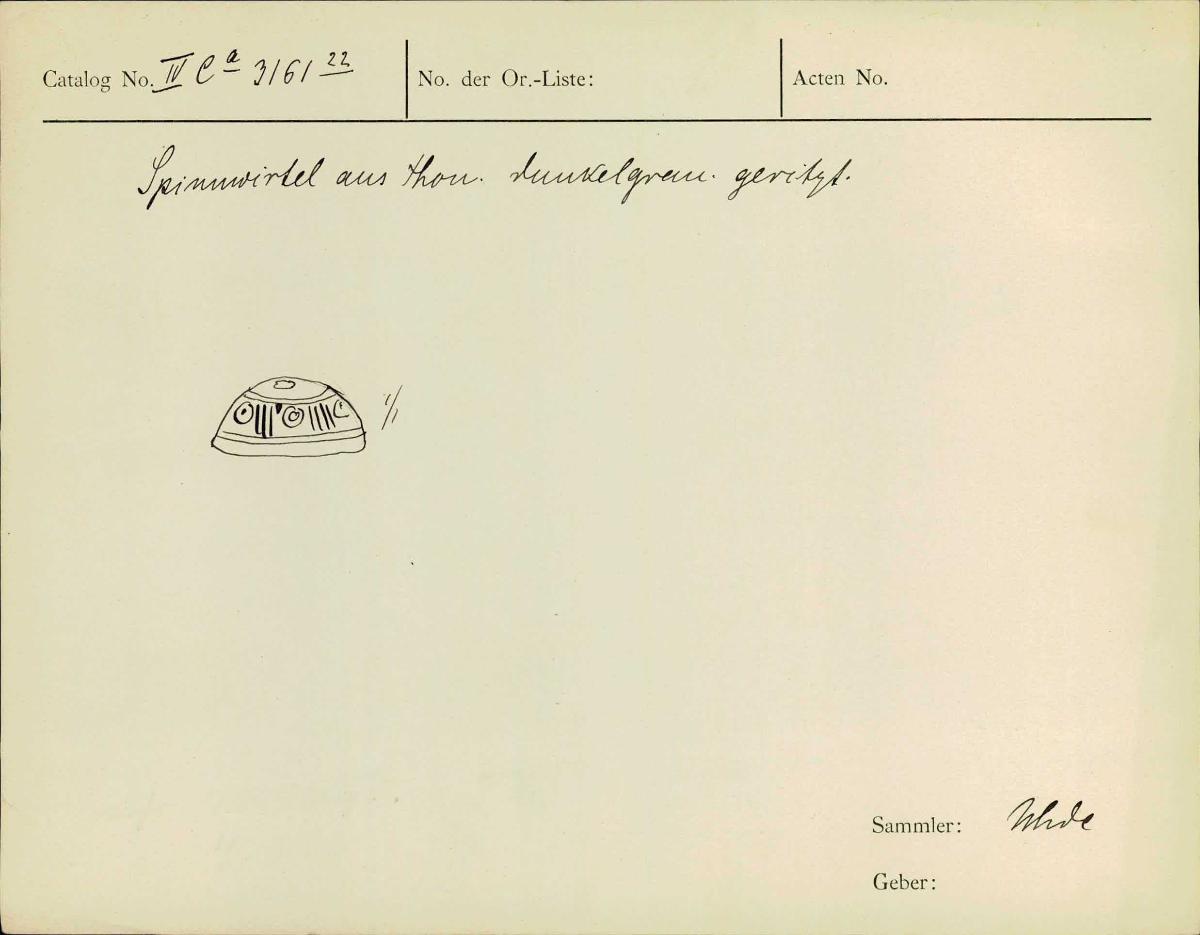 Catalog No. IV Ca 3161 22 No. der Or.-Liste: Acten No.
Spinnwirtel aus Thon. dunkelgrau. geritzt.
1/1
Sammler: Uhde
Geber: